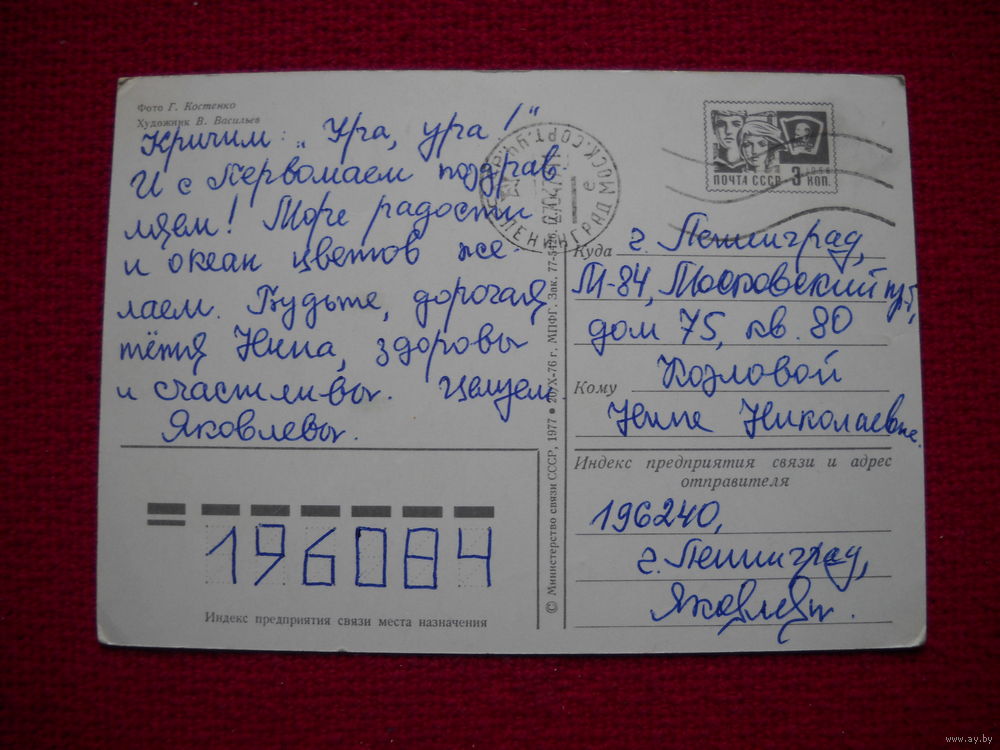 Фото Г. Костенко
Художник В. Васильев
Кричим: „Ура, ура!“
И с Первомаем поздрав
ляем! Море радости
и океан цветов же-
лаем. Будьте, дорогая
тётя Нина, здоровы
и счастливы. Целуем.
Яковлевы.
ПОЧТА СССР 3 КОП.
1966
ЛЕНИНГРАД МОСК.СОРТ.
Куда г. Ленинград,
М-84, Московский пр-т,
дом 75, кв. 80
Козловой
Кому
Нине Николаевне.
Индекс предприятия связи и адрес
отправителя
196240,
г. Ленинград,
Яковлевы.
196084
Индекс предприятия связи места назначения
© Министерство связи СССР, 1977 ● 20/X-76 г., МПФГ. Зак. 77-
www.ay.by